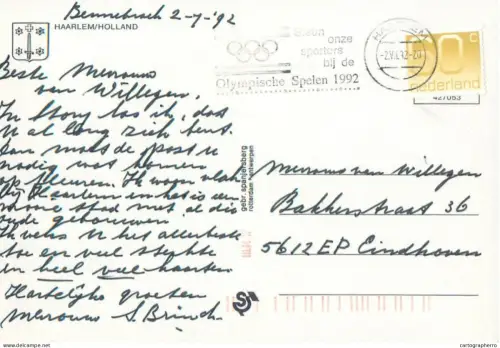 Bennebroek 2-7-'92
HAARLEM/HOLLAND
Steun onze
sporters
bij de
Olympische Spelen 1992
HAARLEM
-2.VII.92-20
nederland
427083
Beste Mevrouw
van Willegen.
In Story las ik, dat
U al lang ziek bent.
Dan moet de post U
nodig wat komen
opfleuren. Ik woon vlak
bij Haarlem en het is een
mooie stad met al die
oude gebouwen
Ik wens U het allerbeste
toe en veel sterkte
en heel veel kaarten
Hartelijke groeten
Mevrouw S.
gebr. spanjersberg
rotterdam
Mevrouw van Willegen
Bakkerstraat 36
5612EP Eindhoven
cartographerro